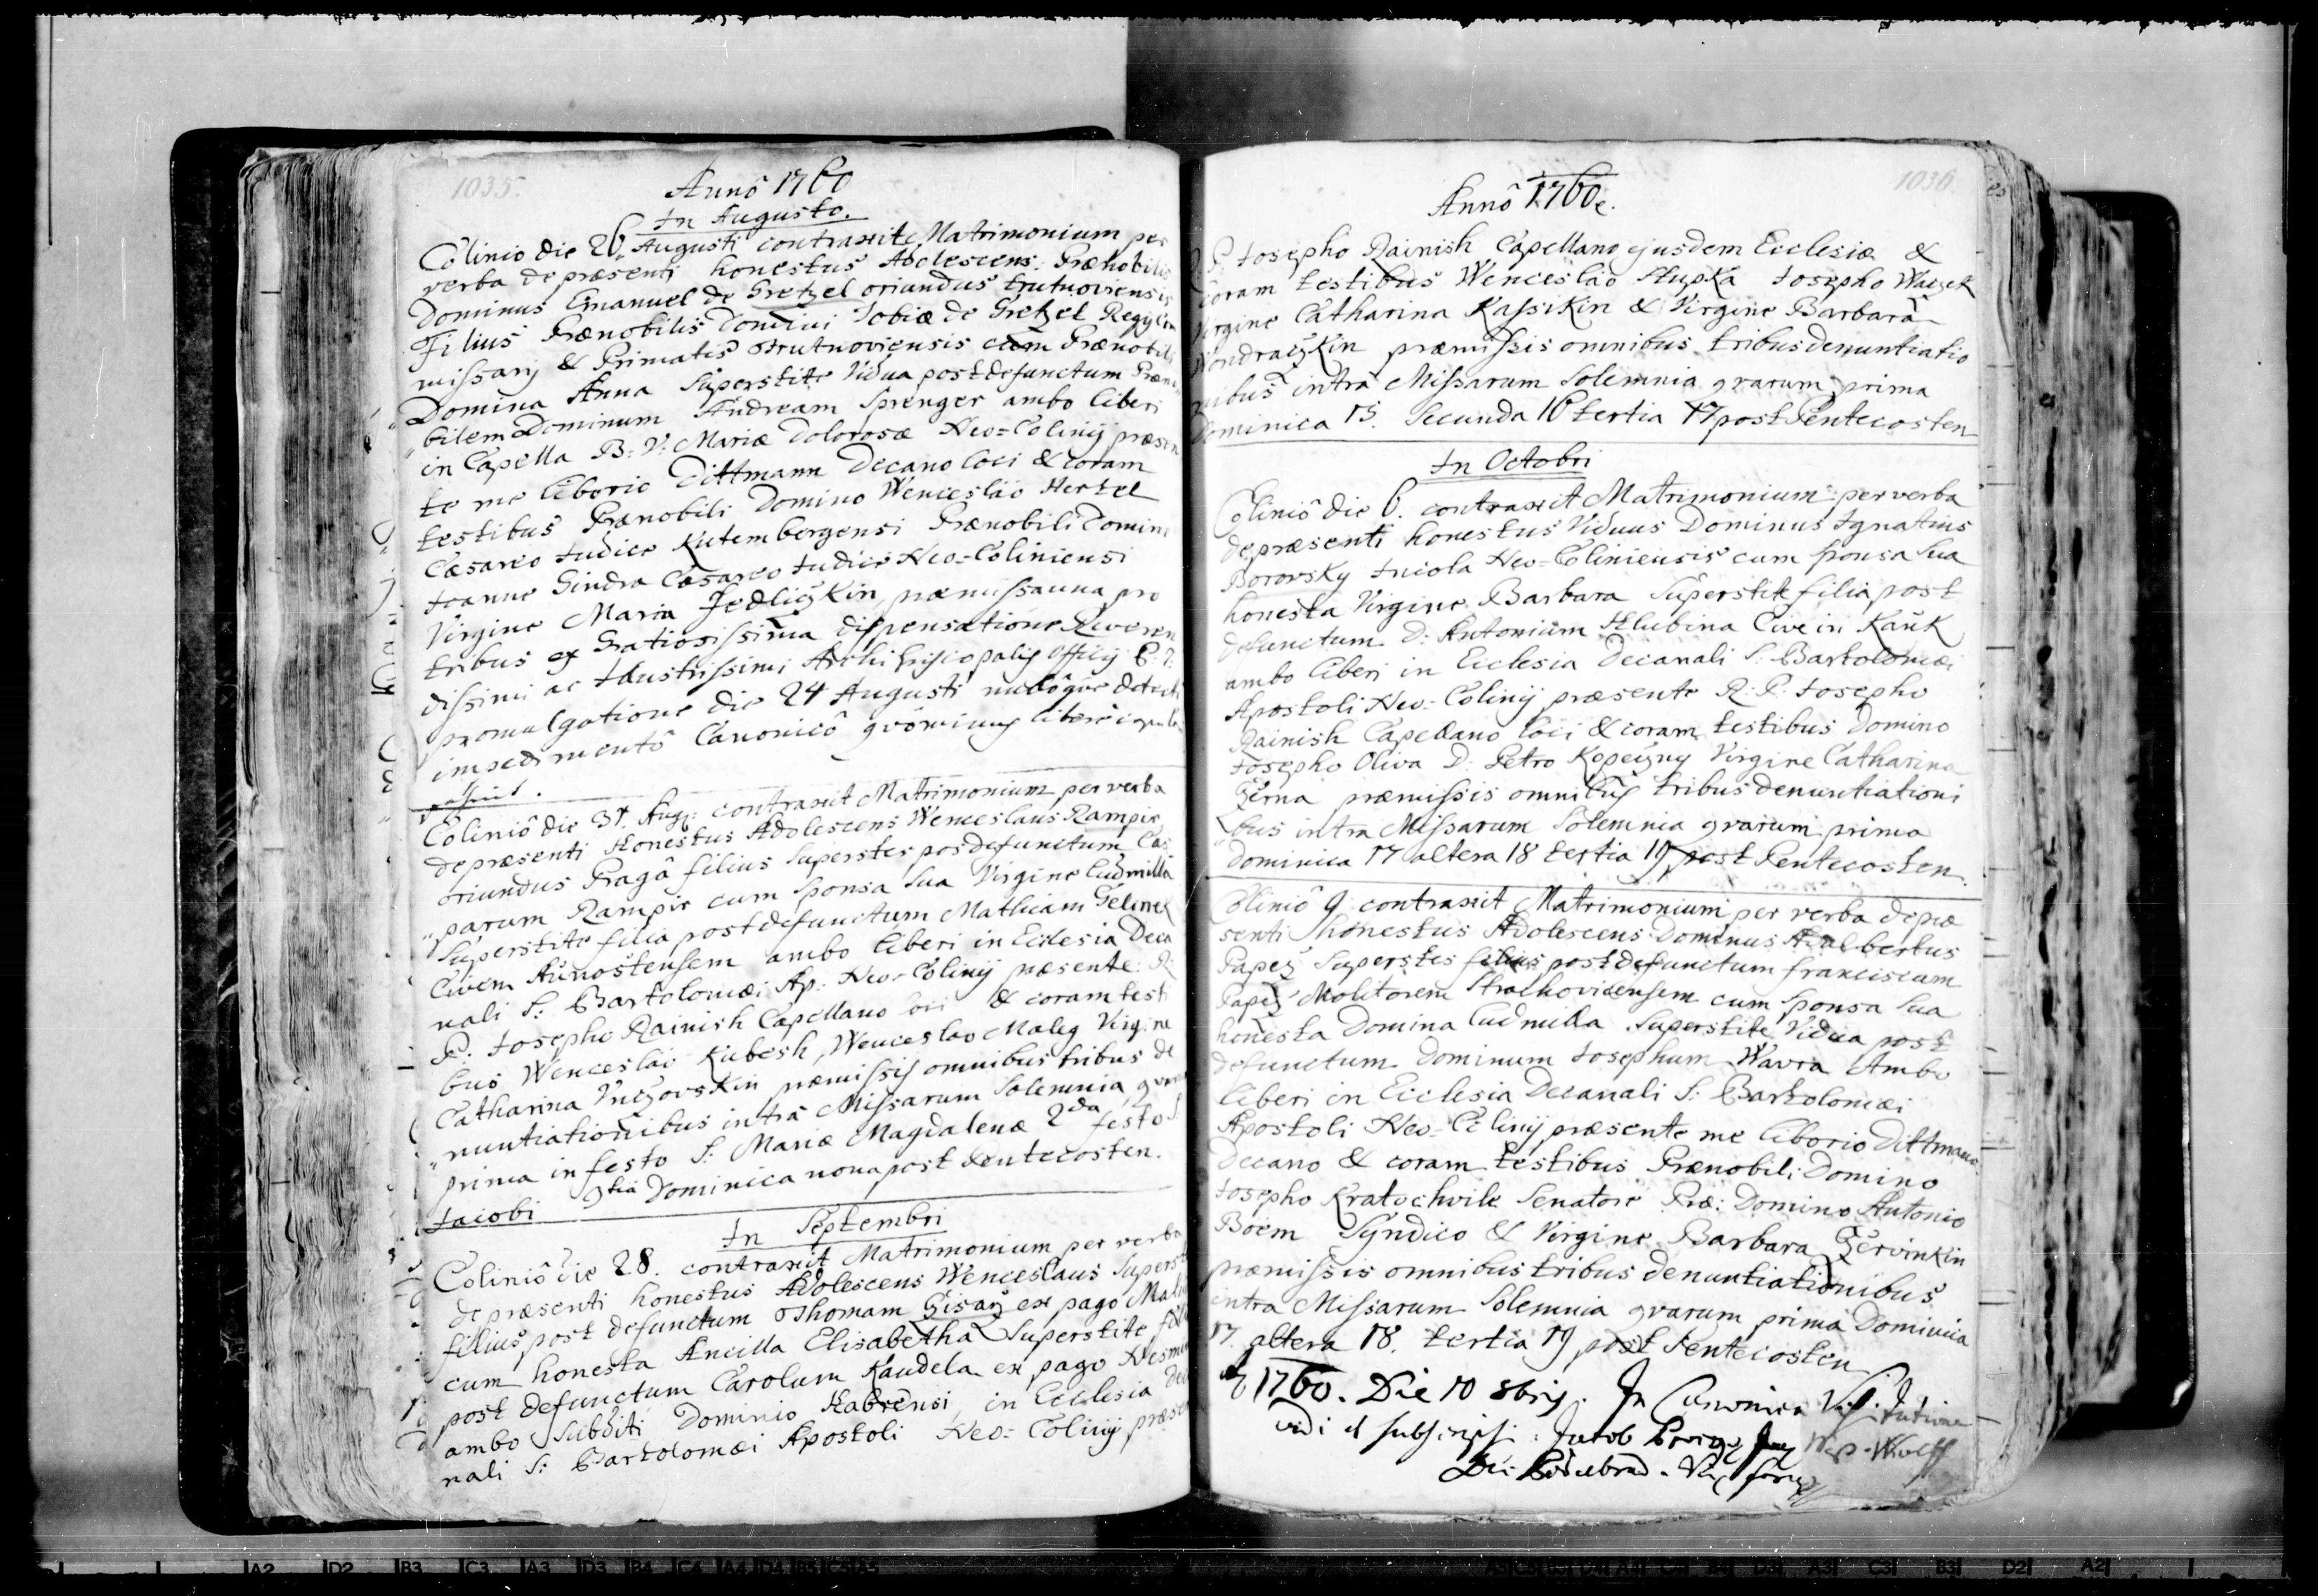 1035.
Annô 1760
In Augusto.
Colinio die 26 Augusti contraxit Matrimonium per
verba de præsenti honestus Adolescens Prænobilis
Dominus Emanuel de Gretzel oriundus Trutnoviensis
Filius Prænobilis Domini Tobiæ de Gretzel Regij Com
missarij & Primatis Trutnoviensis cum Prænobili
Domina Anna Superstite Vidua post defunctum Præno
bilem Dominum Andream Sprenger ambo liberi
in Capella B: V: Mariæ Dolorosæ Neo-Colinij præsen
te me Liborio Dittmann Decano loci & coram
testibus Prænobili Domino Wenceslao Hertel
Cæsareo Judice Kutembergensi Prænobili Domino
Joanne Gindra Cæsareo Judice Neo-Coliniensi
Virgine Maria Jedliczkin, præmissa una pro
tribus ex Gratiosissima dispensatione Reveren
dissimi ac Illustrissimi Archi Episcopalis Officij P: P:
promulgatione die 24 Augusti nullôque detecto
impedimentô Canonicô quôminus liberè copula

Colinio die 31. Aug: contraxit Matrimonium per verba
de præsenti Honestus Adolescens Wenceslaus Rampir
oriundus Pragâ filius Superstes pos defunctum Cas
"parum Rampir cum Sponsa Sua Virgine Ludmilla
Superstite filia post defunctum Mathiam Gelinek
Civem Aurostensem ambo liberi in Ecclesia Deca
nali S: Bartolomæi Ap: Neo-Colinij præsente R:
P: Josepho Rainish Capellano loci & coram testi
bus Wenceslao Kubesh, Wenceslao Maleg Virgine
Catharina præmissis omnibus tribus de
"nuntiationibus intrâ Missarum Solemnia quarum
prima in festo S: Mariæ Magdalenæ 2da festo S
Jacobi 3tia Dominica nona post Pentecosten.
In Septembri
Colinio die 28. contraxit Matrimonium per verba
de præsenti honestus Adolescens Wenceslaus Superst
filius post defunctum Thomam Gisarz ex pago
cum honesta Ancilla Elisabetha Superstite fil
post defunctum Carolum Kaudela ex pago
ambo Subditi Dominio in Ecclesia De
nali S: Bartolomæi Apostoli Neo-Colinij præsen
1036
Annô 1760.
R. P. Josepho Rainish Capellano ejusdem Ecclesiæ &
coram testibus Wenceslao Stupka Josepho Waczek
Virgine Catharina Kassikin & Virgine Barbarâ
Wondraczkin præmissis omnibus tribus denuntiatio
nibus intrâ Missarum Solemnia quarum prima
Dominica 15. Secunda 16 tertia 17 post Pentecosten
In Octobri
Colinio die 6. contraxit Matrimonium per verba
de præsenti honestus Viduus Dominus Ignatius
Borovsky Incola Neo-Coliniensis cum Sponsa Sua
honesta Virgine Barbara Superstite filia post
defunctum D: Antonium Hlubina Cive in Kauk
ambo liberi in Ecclesia Decanali S: Bartolomæi
Apostoli Neo-Colinij præsente R: P: Josepho
Rainish Capellano loci & coram testibus Domino
Josepho Oliva D: Petro Kopeczny Virgine Catharina
Zerna præmissis omnibus tribus denuntiationi
bus intra Missarum Solemnia quarum prima
Dominica 17 altera 18 tertia 19 post Pentecosten.
Colinio 9 contraxit Matrimonium per verba de præ
senti honestus Adolescens Dominus Adalbertus
Papez Superstes filius post defunctum Franciscum
Papez Molitorem Strachovicensem cum Sponsa Sua
honesta Domina Ludmilla Superstite Vidua post
defunctum Dominum Josephum Wavra Ambo
liberi in Ecclesia Decanali S: Bartolomæi
Apostoli Neo-Colinij præsente me Liborio Dittmann
Decano & coram testibus Prænobili Domino
Josepho Kratochvile Senatore Præ: Domino Antonio
Boem Syndico & Virgine Barbara Zervinkin
præmissis omnibus tribus denuntiationibus
intra Missarum Solemnia quarum prima Dominica
17. altera 18. tertia 19 post Pentecosten
1760. Die 10 8bris. In Canonica Visitatione
vidi et subscripsi. Jacob